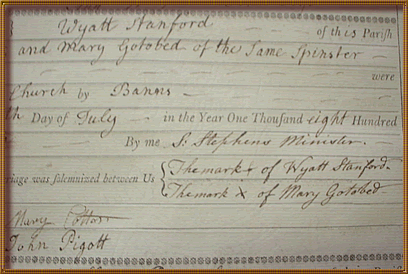 Wyatt Stanford of this Parish
and Mary Gotobed of the Same Spinster
were
Church by Banns
th Day of July in the Year One Thousand eight Hundred
By me S. Stephens Minister.
riage was solemnized between Us { The mark x of Wyatt Stanford
The mark x of Mary Gotobed
Mary Cotton
John Pigott